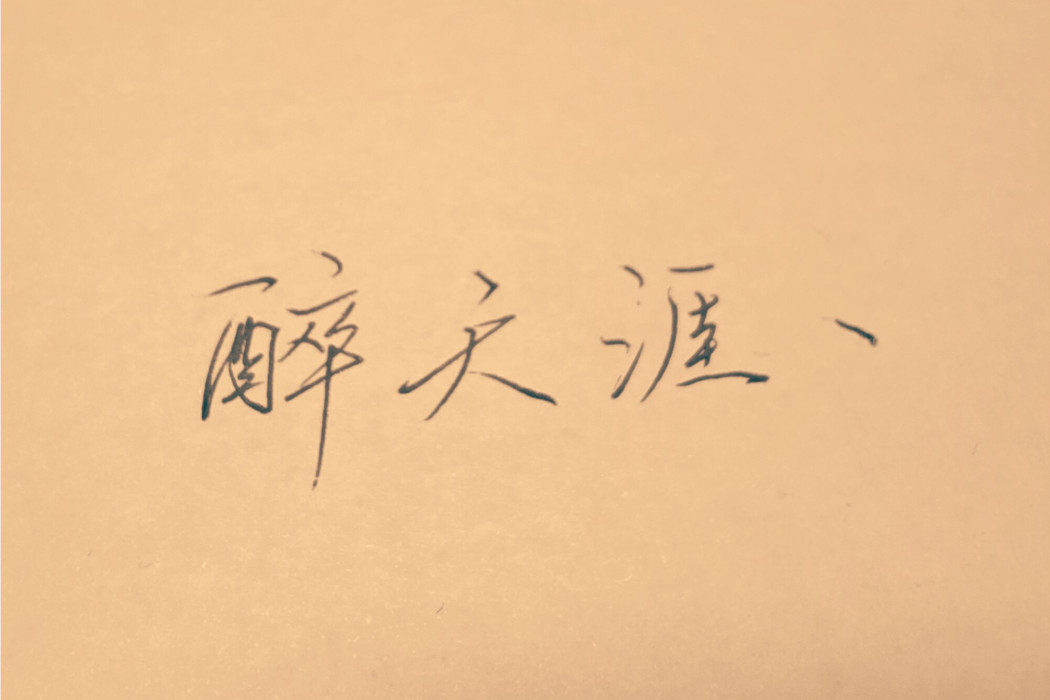 醉天涯、